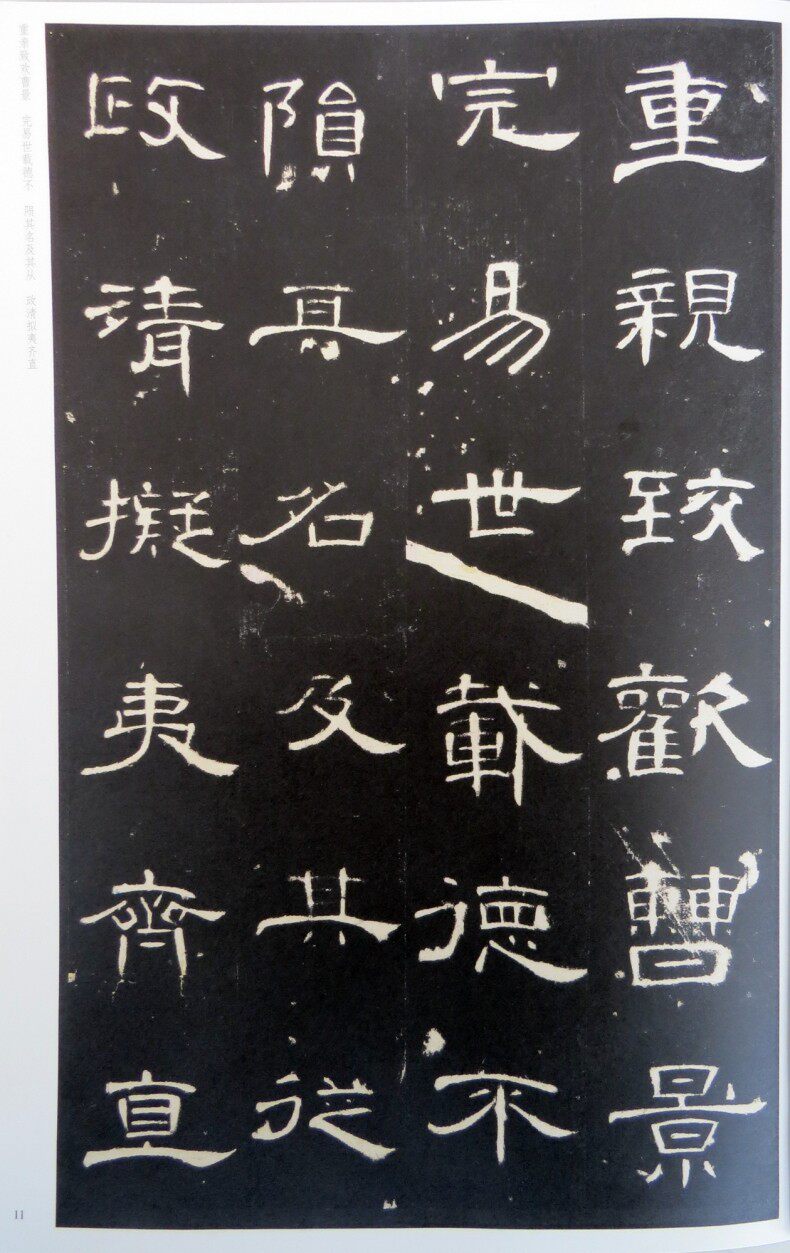 重親致歡曹景
完易世載德不
隕其名及其從
政清擬夷齊直
重亲致欢曹景　完易世载德不　陨其名及其从　政清拟夷齐直
11